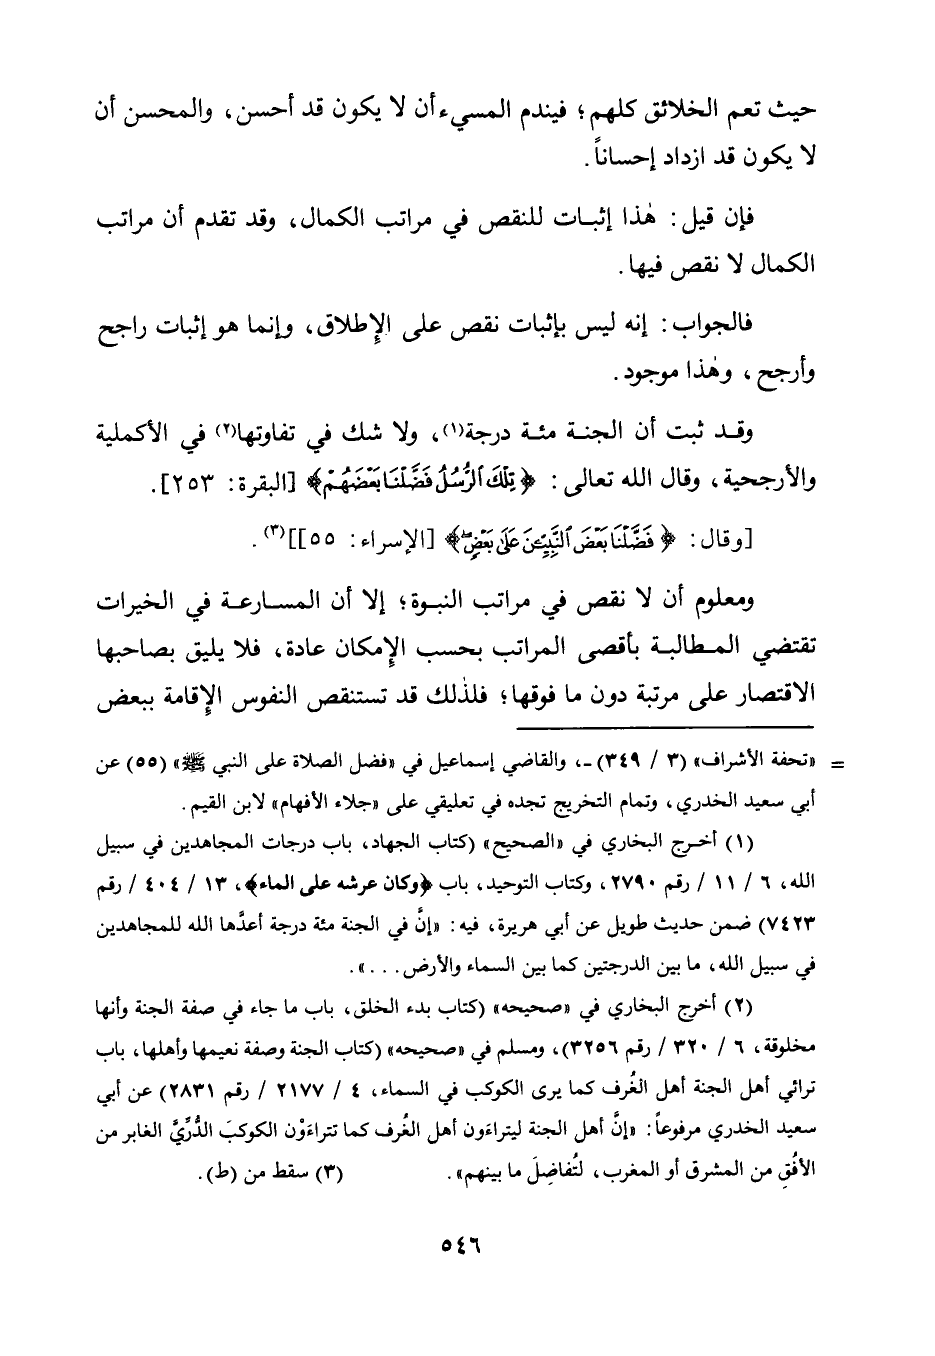 حيث تعم الخلائق كلهم؛ فيندم المسيء أن لا يكون قد أحسن، والمحسن أن
لا يكون قد ازداد إحساناً.
فإن قيل: هٰذا إثبات للنقص في مراتب الكمال، وقد تقدم أن مراتب
الكمال لا نقص فيها.
فالجواب: إنه ليس بإثبات نقص على الإطلاق، وإنما هو إثبات راجح
وأرجح، وهٰذا موجود.
وقد ثبت أن الجنة مئة درجة(١)، ولا شك في تفاوتها(٢) في الأكملية
والأرجحية، وقال الله تعالى: ﴿تِلْكَ ٱلرُّسُلُ فَضَّلْنَا بَعْضَهُمْ﴾ [البقرة: ٢٥٣].
[وقال: ﴿فَضَّلْنَا بَعْضَ ٱلنَّبِيِّۦنَ عَلَىٰ بَعْضٍ﴾ [الإسراء: ٥٥]](٣).
ومعلوم أن لا نقص في مراتب النبوة؛ إلا أن المسارعة في الخيرات
تقتضي المطالبة بأقصى المراتب بحسب الإمكان عادة، فلا يليق بصاحبها
الاقتصار على مرتبة دون ما فوقها؛ فلذٰلك قد تستنقص النفوس الإقامة ببعض
= «تحفة الأشراف» (٣ / ٣٤٩) -، والقاضي إسماعيل في «فضل الصلاة على النبي ﷺ» (٥٥) عن
أبي سعيد الخدري، وتمام التخريج تجده في تعليقي على «جلاء الأفهام» لابن القيم.
(١) أخرج البخاري في «الصحيح» (كتاب الجهاد، باب درجات المجاهدين في سبيل
الله، ٦ / ١١ / رقم ٢٧٩٠، وكتاب التوحيد، باب ﴿وكان عرشه على الماء﴾، ١٣ / ٤٠٤ / رقم
٧٤٢٣) ضمن حديث طويل عن أبي هريرة، فيه: «إنَّ في الجنة مئة درجة أعدَّها الله للمجاهدين
في سبيل الله، ما بين الدرجتين كما بين السماء والأرض...».
(٢) أخرج البخاري في «صحيحه» (كتاب بدء الخلق، باب ما جاء في صفة الجنة وأنها
مخلوقة، ٦ / ٣٢٠ / رقم ٣٢٥٦)، ومسلم في «صحيحه» (كتاب الجنة وصفة نعيمها وأهلها، باب
ترائي أهل الجنة أهل الغُرف كما يرى الكوكب في السماء، ٤ / ٢١٧٧ / رقم ٢٨٣١) عن أبي
سعيد الخدري مرفوعاً: «إنَّ أهل الجنة ليتراءَون أهل الغُرف كما تتراءَوْن الكوكبَ الدُّرِّيَّ الغابر من
الأفُقِ من المشرق أو المغرب، لتُفاضِلَ ما بينهم». (٣) سقط من (ط).
٥٤٦